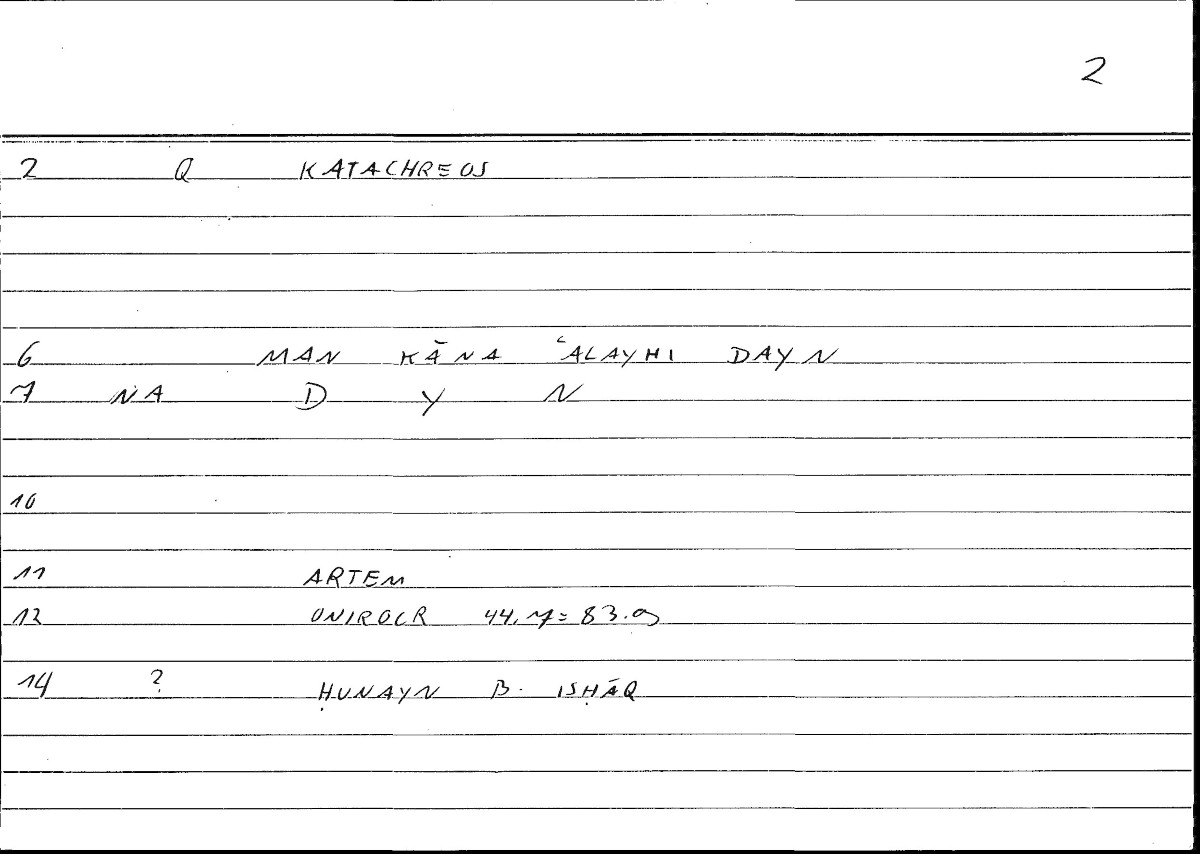 2
2 Q KATACHREOS
6 MAN KĀNA ʿALAYHI DAYN
7 NA D Y N
10
11 ARTEM
12 ONIROCR 44.7=83.9
14 ? ḤUNAYN B. ISḤĀQ